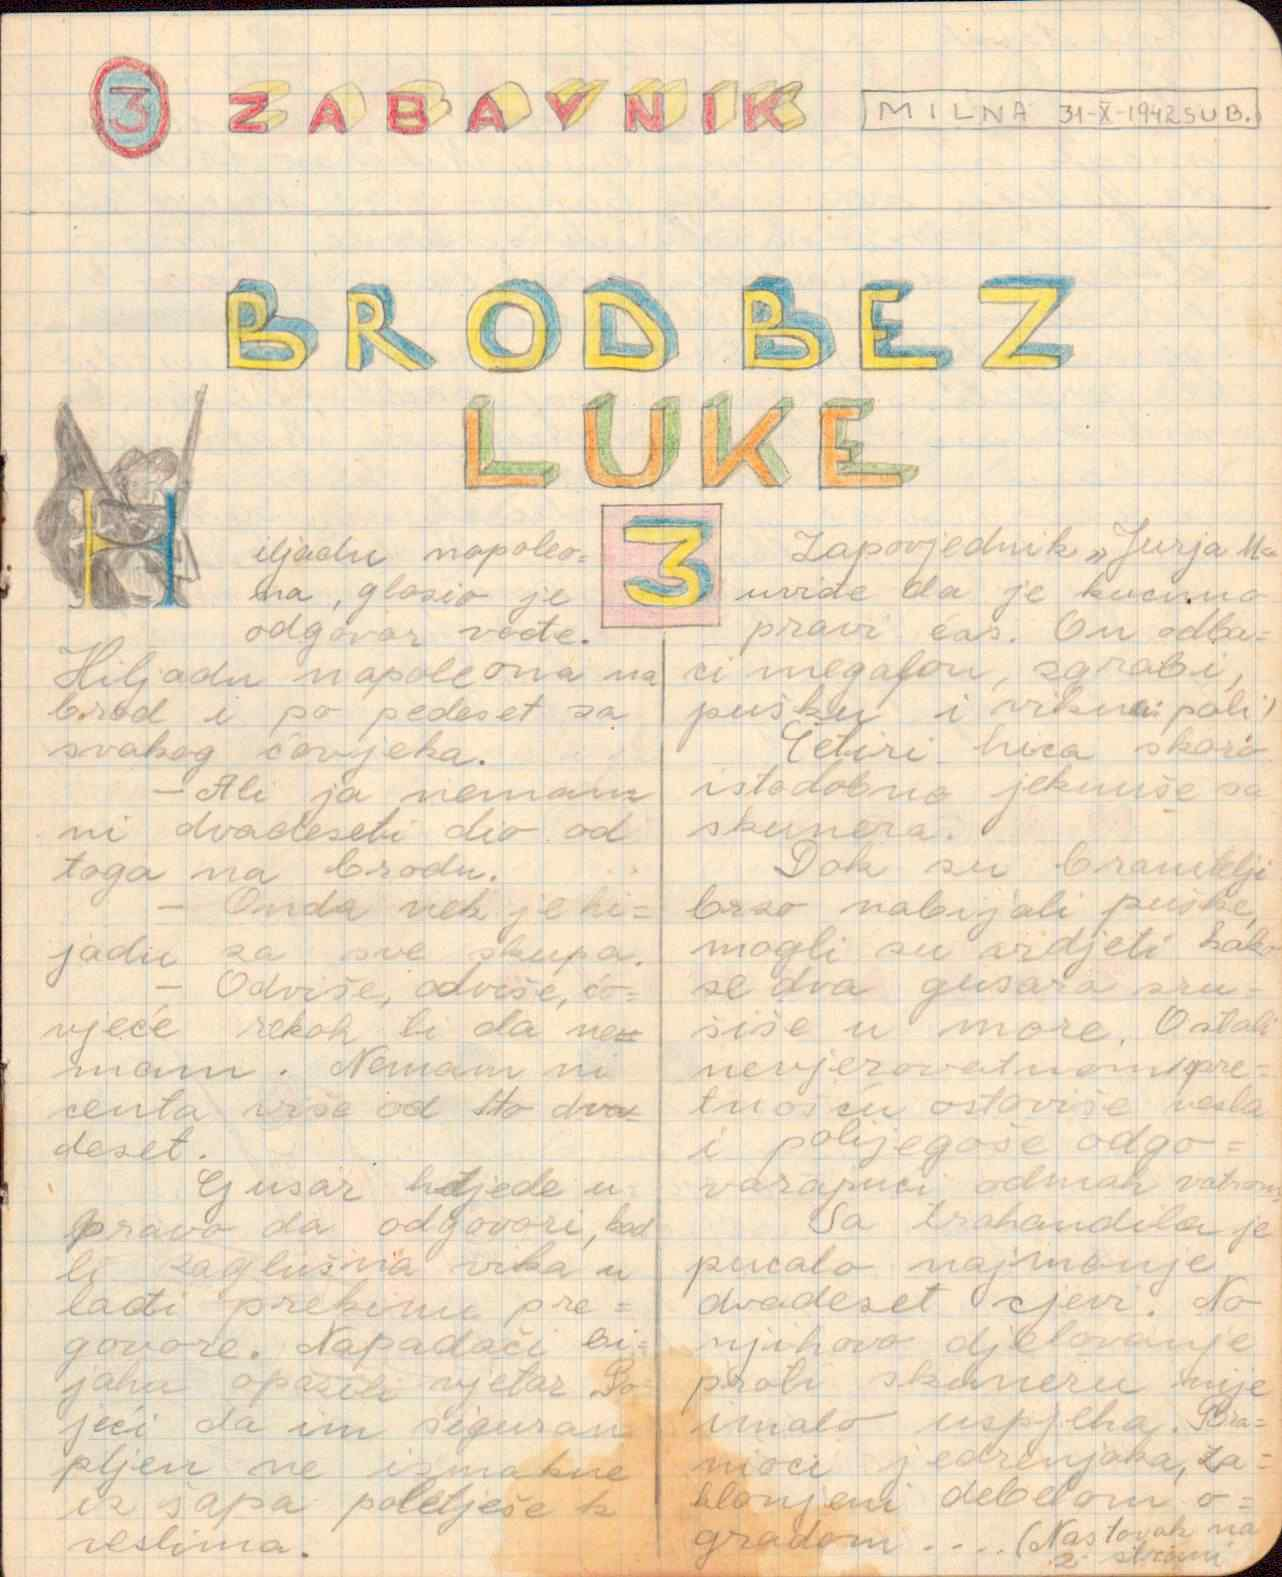 3 ZABAVNIK MILNA 31-X-1942 SUB.
BROD BEZ
LUKE
3
Hiljadu napoleo=
na, glosio je
odgovor vođe.
Hiljadu napoleona na
brod i po pedeset za
svakog čovjeka.
– Ali ja nemam
ni dvadeseti dio od
toga na brodu.
– Onda nek je hi=
jadu za sve skupa.
– Odviše, odviše, čo=
vječe rekoh ti da ne=
mam. Nemam ni
centa više od sto dva=
deset.
Gusar htjede u
pravo da odgovori, kad
li zaglušna vika u
lađi prekinu pre=
govore. Napadači bi=
jahu opazili vjetar. Bo=
jeći da im siguran
plijen ne izmakne
iz šapa poletješe k
veslima.
Zapovjednik „Jurja Ma
uviđe da je kucnuo
pravi čas. On odba=
ci megafon, zgrabi,
pušku i viknu: pali!
Četiri hica skoro
istodobno jeknuše sa
skunera.
Dok su branitelji
brzo nabijali puške,
mogli su vidjeti kako
se dva gusara sru=
šiše u more. Ostali
nevjerovatnom spre=
tnošću ostaviše vesla
i polijegoše odgo=
varajući odmah vatrom
Sa trahandila je
pucalo najmanje
dvadeset cjevi. No
njihovo djelovanje
proti skuneru nije
imalo uspjeha. Bra=
nioci jedrenjaka, za=
klonjeni debelom o=
gradom .... (Nastavak na
2 strani